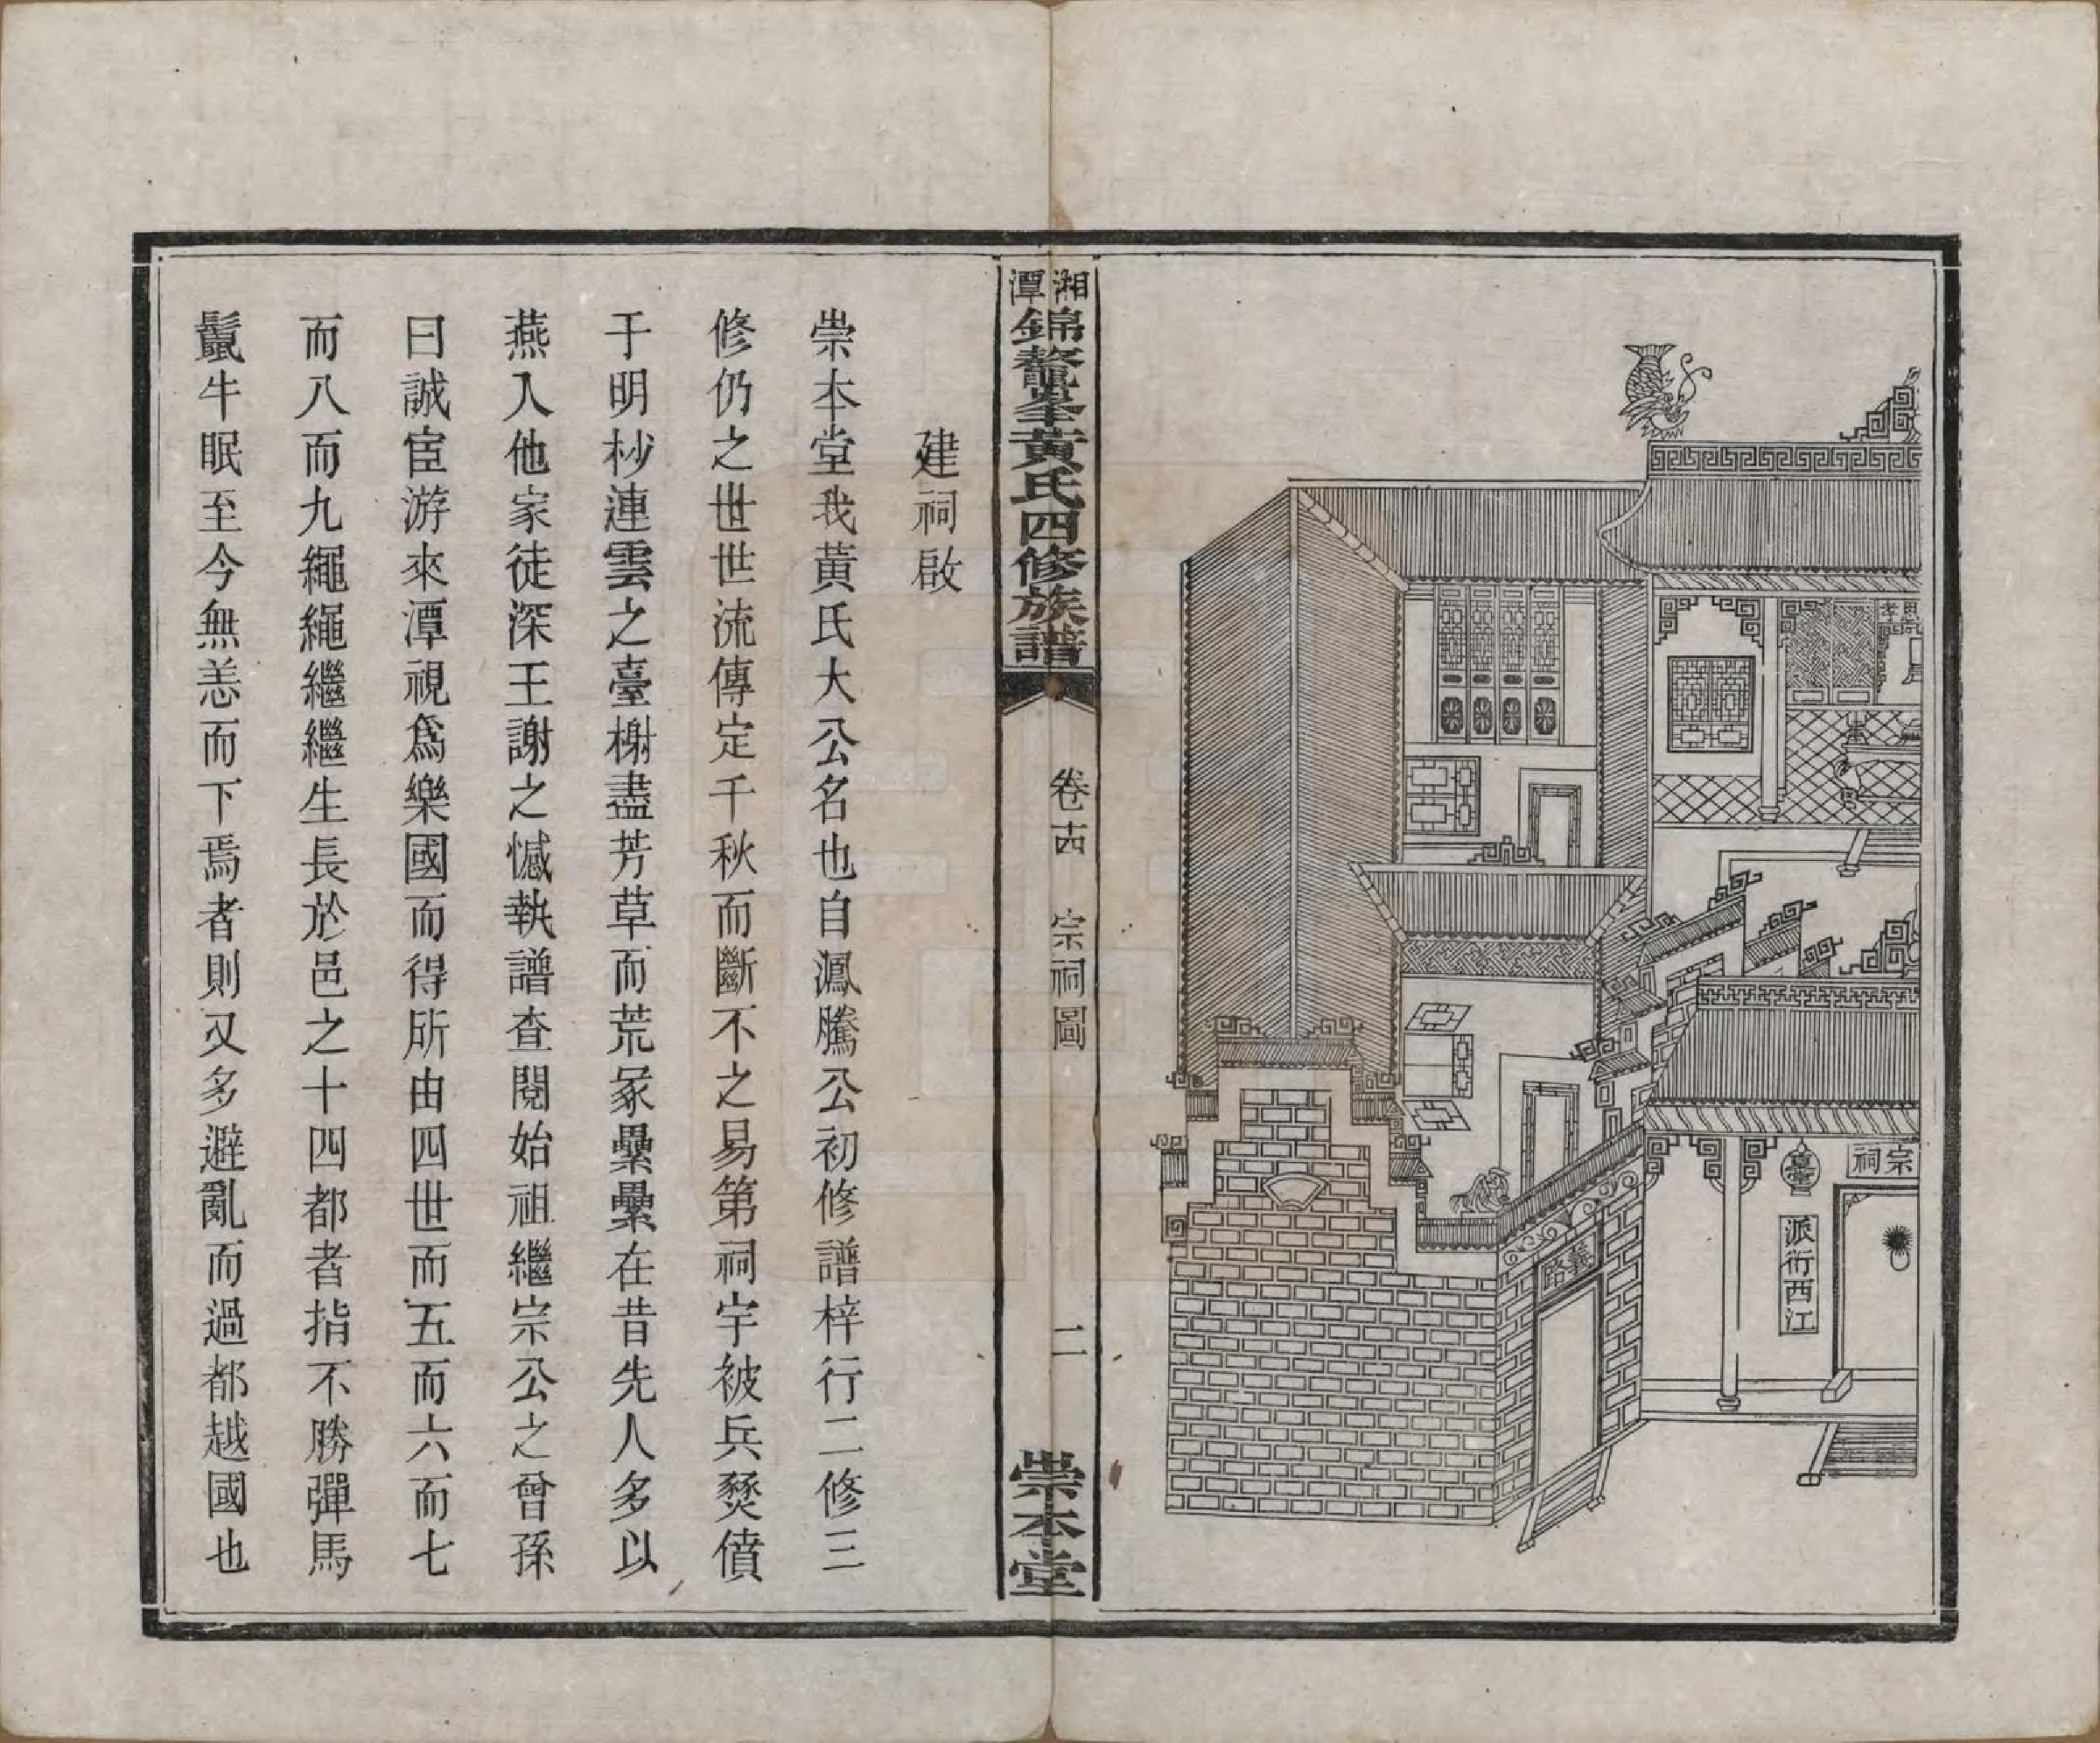 思孝
宗祠
臺
派衍西江
義路
湘潭錦鰲峯黃氏四修族譜
卷十四 宗祠圖
二
崇本堂
建祠啟
崇本堂我黃氏大公名也自鳳騰公初修譜梓行二修三
修仍之世世流傳定千秋而斷不之易第祠宇被兵燹僨
于明杪連雲之臺榭盡芳草而荒冢纍纍在昔先人多以
燕入他家徒深王謝之憾執譜查閱始祖繼宗公之曾孫
曰誠宦游來潭視爲樂國而得所由四世而五而六而七
而八而九繩繩繼繼生長於邑之十四都者指不勝彈馬
鬣牛眠至今無恙而下焉者則又多避亂而過都越國也